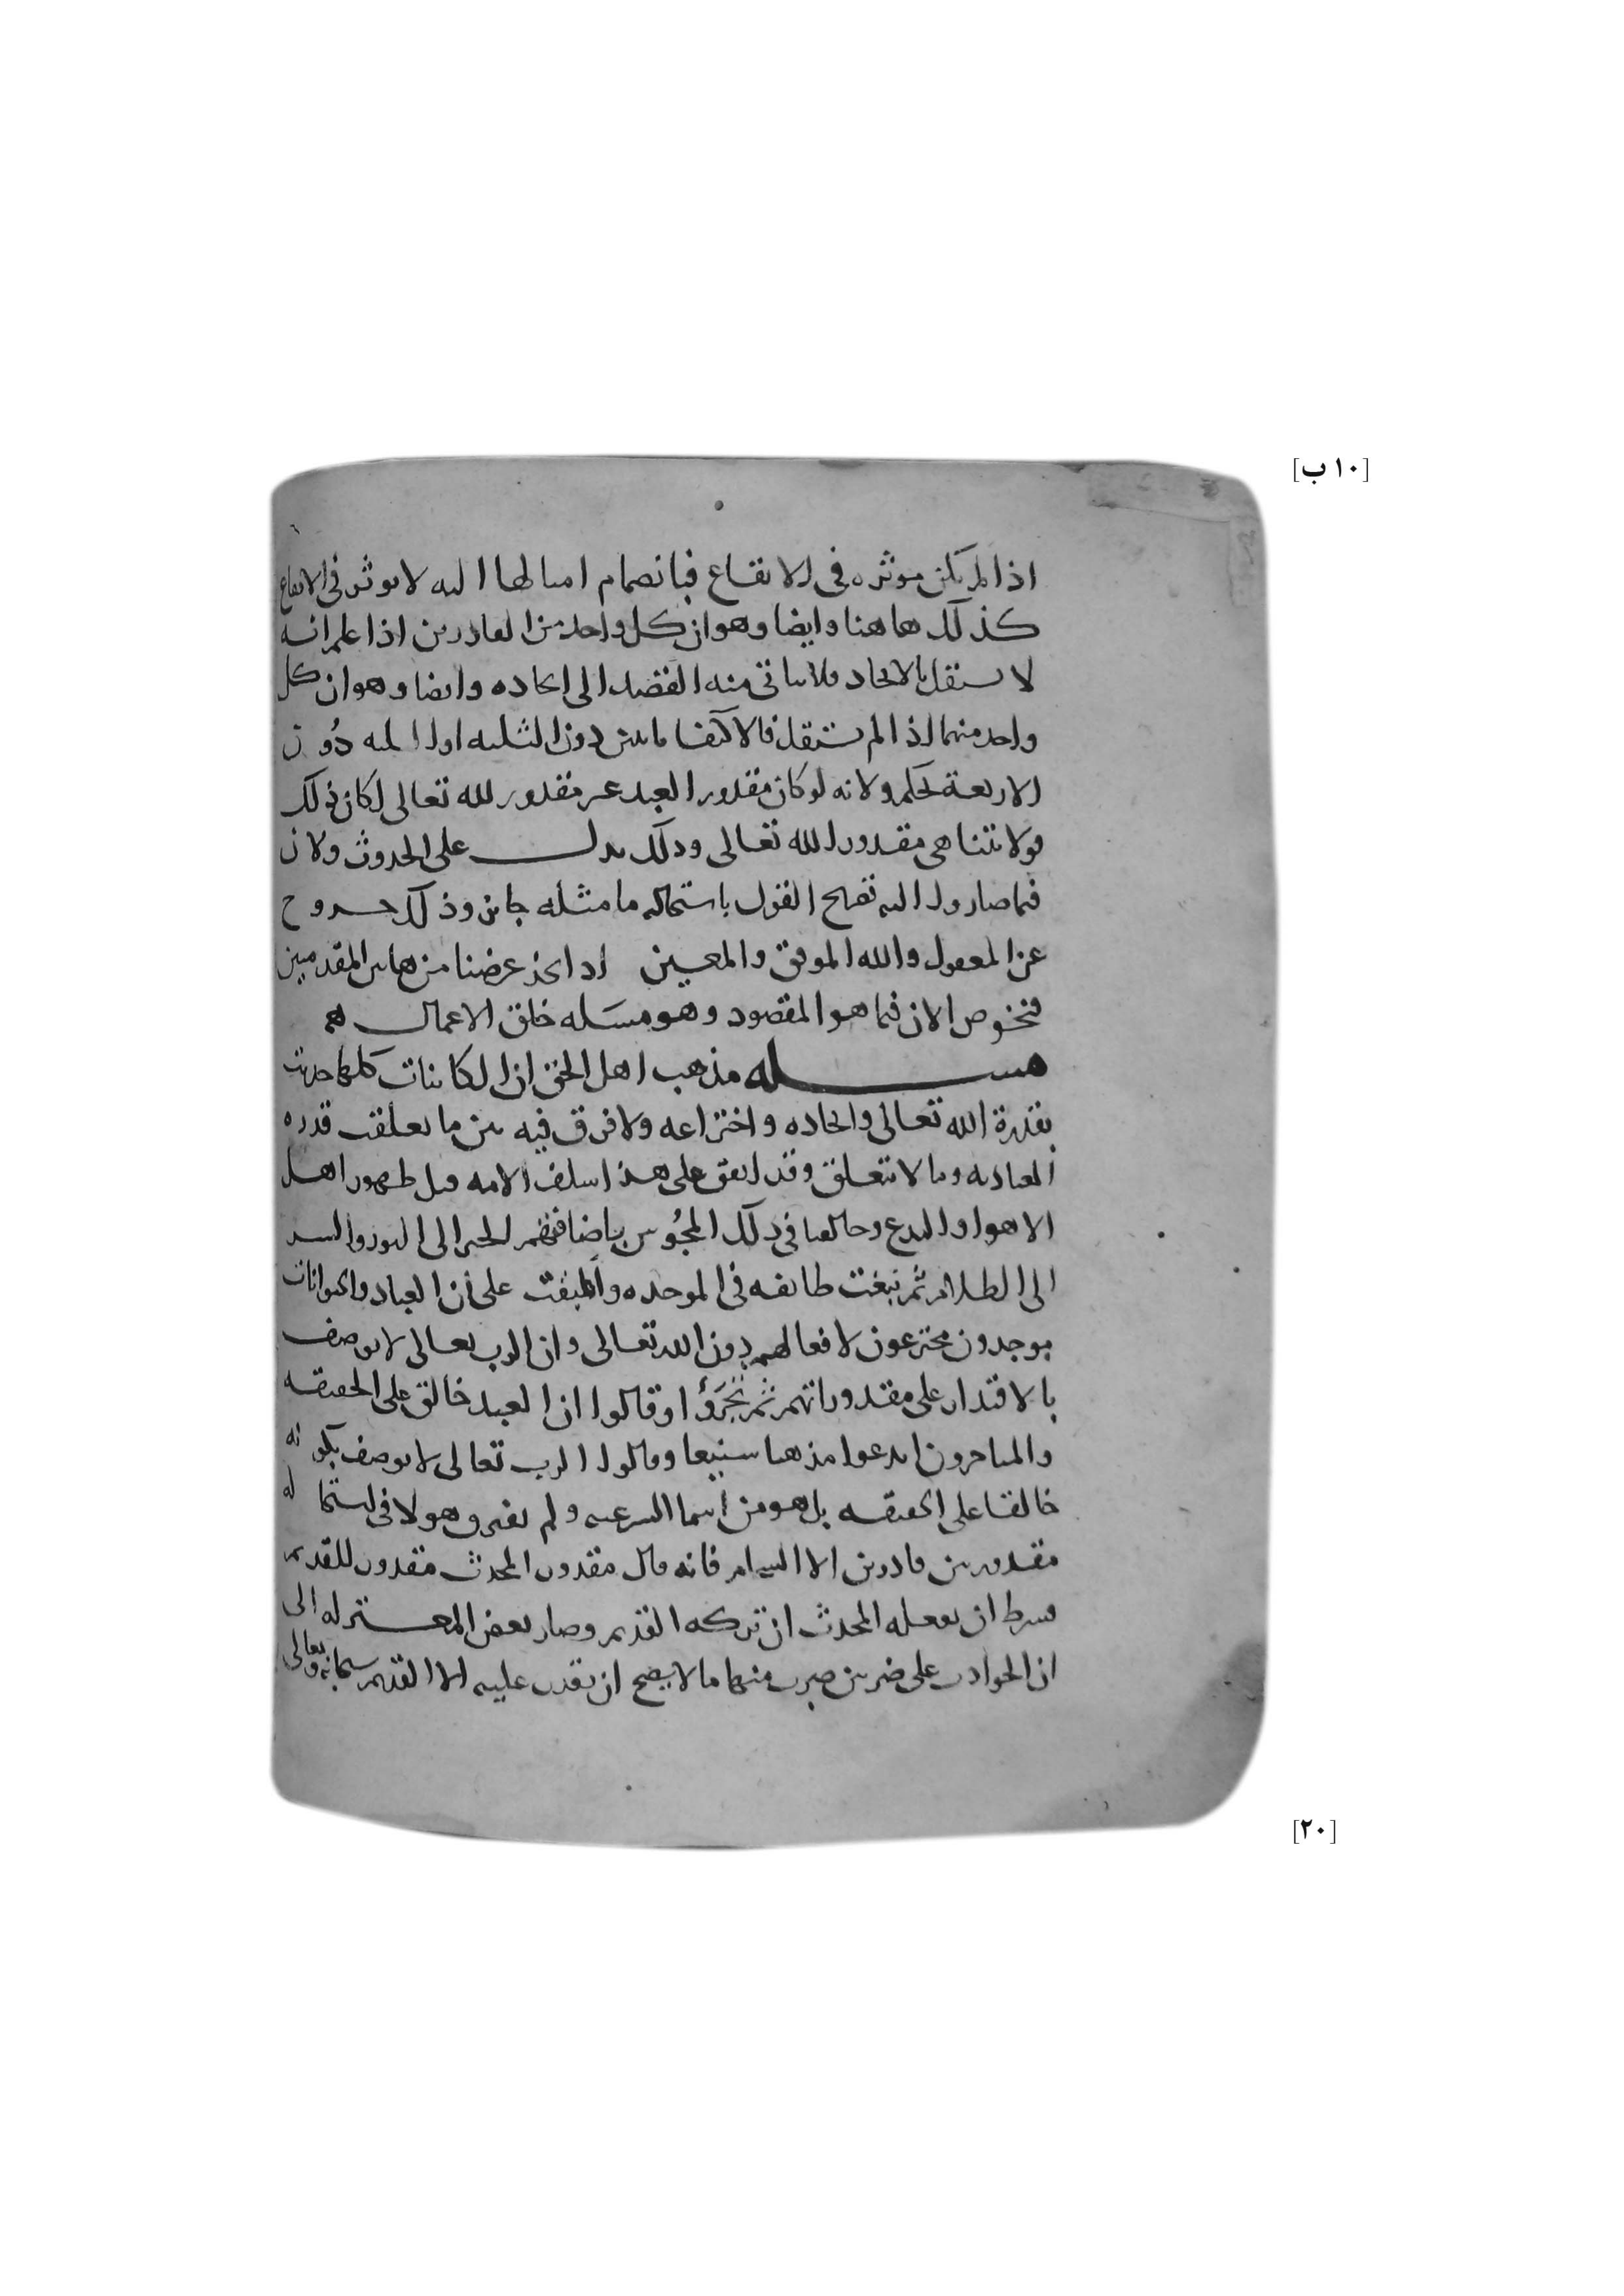 [١٠ ب]
اذا لم يكن موثره في الايقاع فبانضمام امثالها اليه لا يوثر في الايقاع
كذلك هاهنا وايضا وهو ان كل واحد من القادرين اذا علم انه
لا يستقل بالايجاد فلا يتاتى منه القصد الى ايجاده وايضا وهو ان كل
واحد منهما اذا لم يستقل فالاكتفا باثنين دون الثلثه او الثلثه دُون
الاربعة تحكم ولانه لو كان مقدور العبد غير مقدور لله تعالى لكان ذلك
قولا بتناهي مقدور الله تعالى وذلك يدل على الحدوث ولان
فما صاروا اليه تصريح القول باستحاله ما مثله جايز وذلك خروج
عن المعقول والله الموفق والمعين اذ انجز غرضنا من هاتين المقدمتين
فنخوض الان فيما هو المقصود وهو مسَله خلق الاعمال
مسله مذهب اهل الحق ان الكاينات كلها حدثت
بقدرة الله تعالى وايجاده واختراعه ولا فرق فيه بين ما تعلقت قدره
العباد به وما لا تتعلق وقد اتفق على هذا سلف الامه قبل ظهور اهل
الاهوا والبدع وخالفنا في ذلك المجُوس باضافتهم الخير الى النور والشر
الى الظلام ثم نبغت طايفه في الموحده وأطبقت على أن العباد والحيوانات
موجدون مخترعون لافعالهم دون الله تعالى وان الرب تعالى لا يوصف
بالاقتدار على مقدوراتهم ثم تجرؤا وقالوا ان العبد خالق على الحقيقه
والمتاخرون ابدعوا مذهبا شنيعا وقالوا الرب تعالى لا يوصف بكونه
خالقا على الحقيقه بل هو من اسما الشرعيه ولم يفترق هولا في استحاله
مقدور بين قادرين الا الشحام فانه قال مقدور المحدث مقدور للقديم
بشرط ان يفعله المحدث ان تركه القديم وصار بعض المعتزله الى
ان الحوادث على ضربين ضرب منهما ما لا يصح ان يقدر عليه الا القديم سبحانه وتعالى
[٢٠]